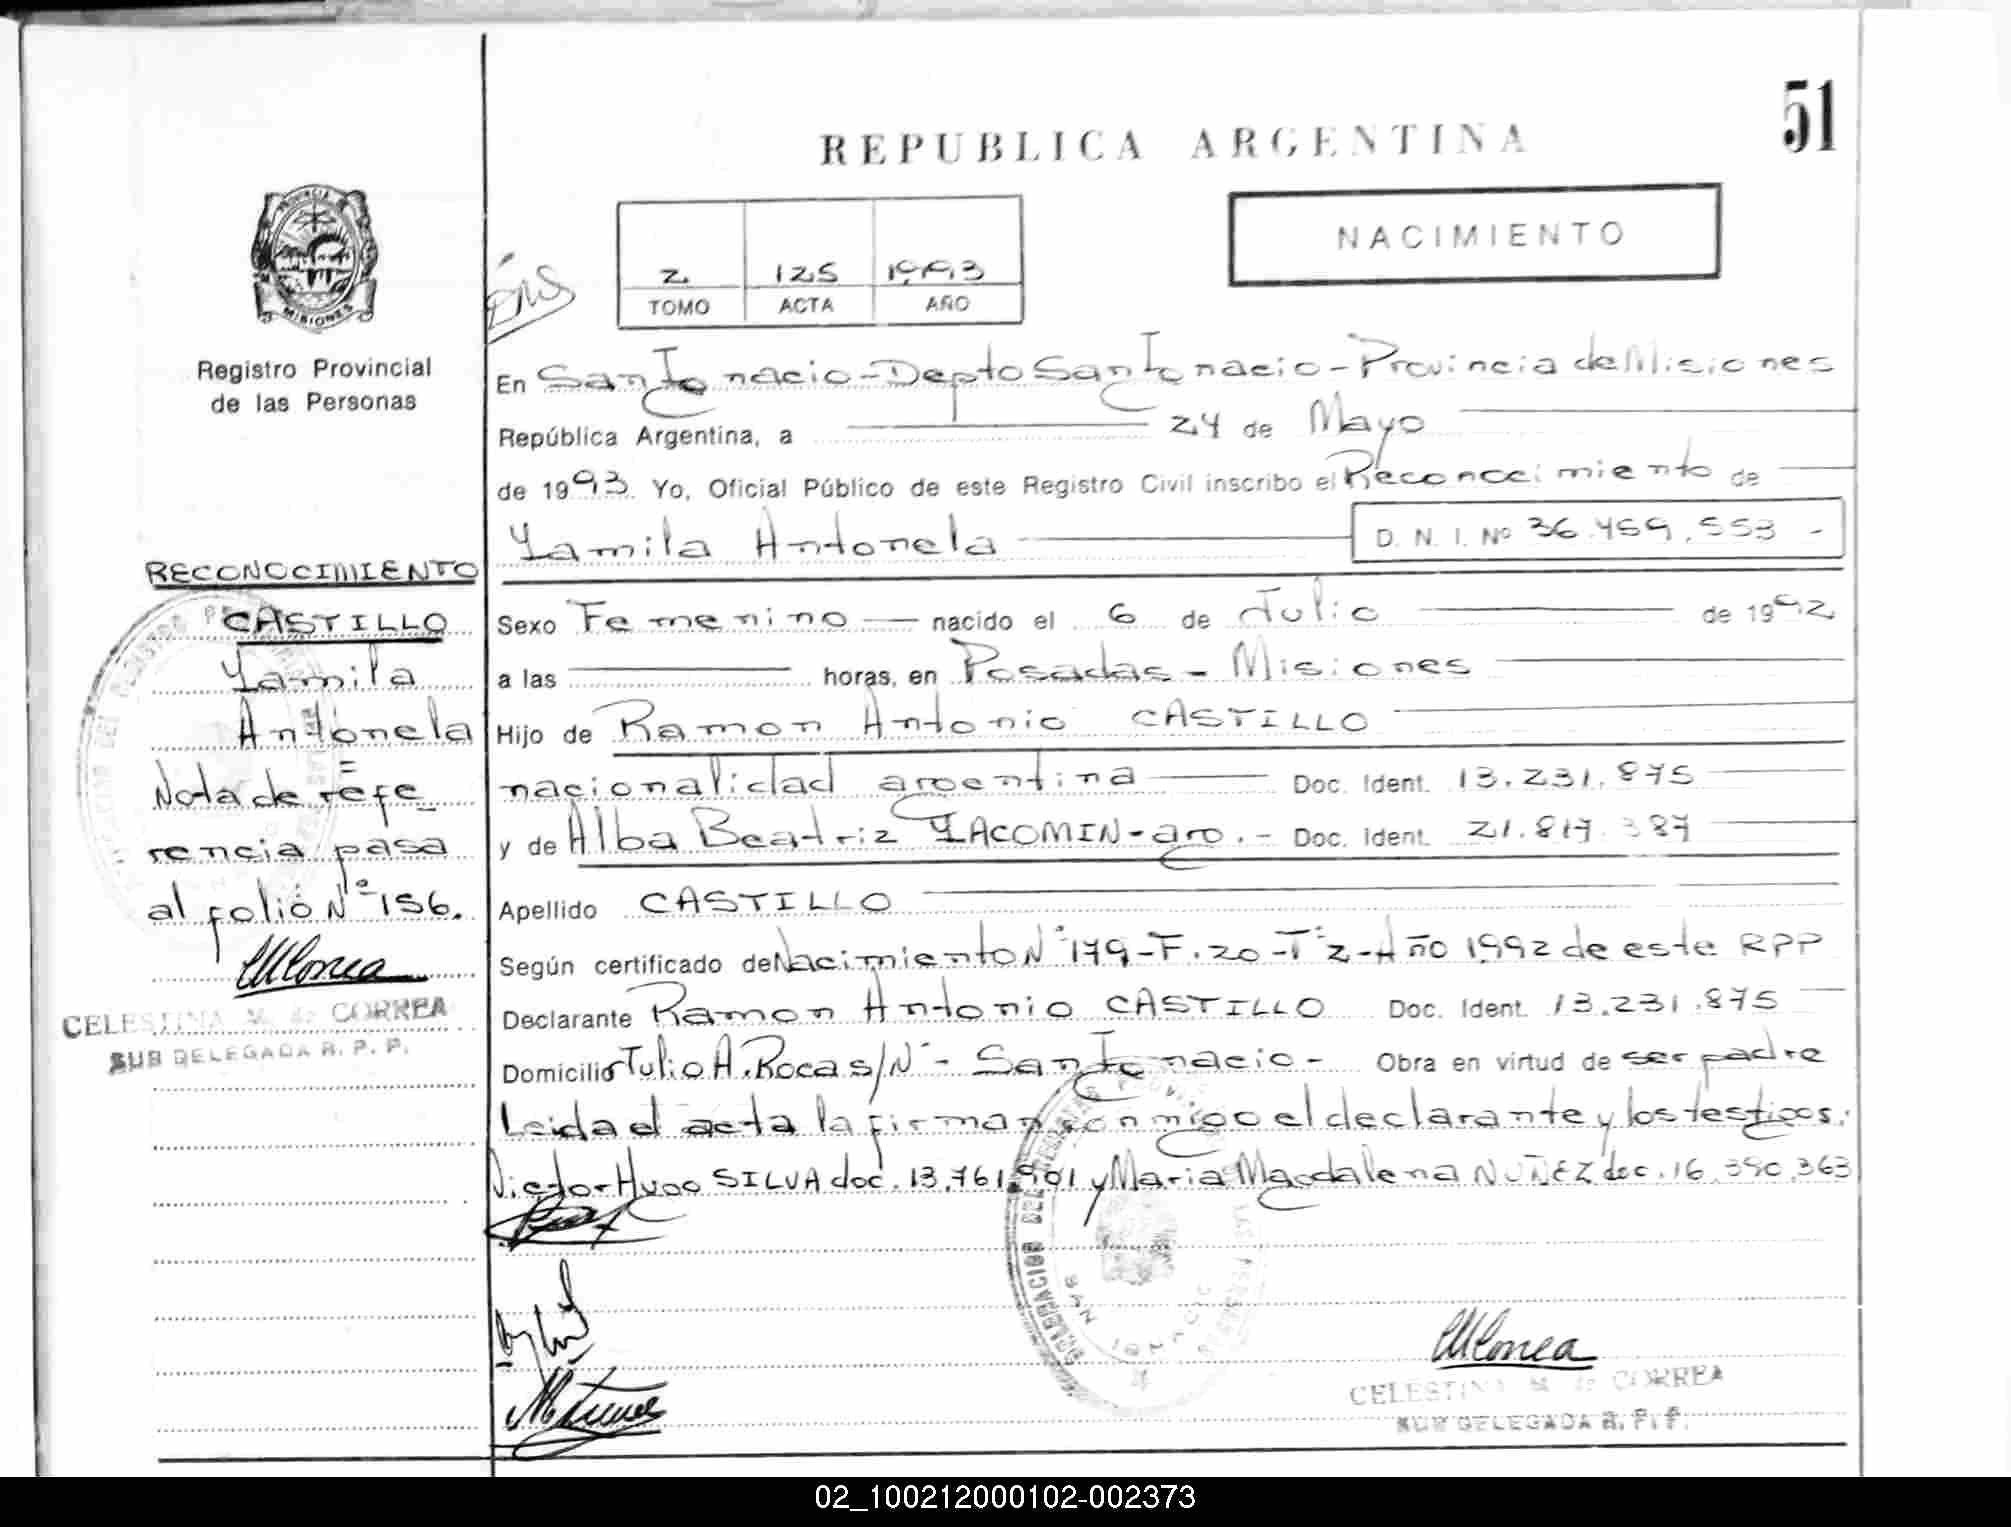 51
REPUBLICA ARGENTINA
PROVINCIA DE
MISIONES
Registro Provincial
de las Personas
2 125 1993
TOMO ACTA AÑO
NACIMIENTO
En San Ignacio - Depto San Ignacio - Provincia de Misiones
República Argentina, a 24 de Mayo
de 1993. Yo, Oficial Público de este Registro Civil inscribo el Reconocimiento de
Yamila Antonela D. N. I. Nº 36.459.553 -
Sexo Femenino nacido el 6 de Julio de 1992
a las horas, en Posadas - Misiones
Hijo de Ramon Antonio CASTILLO
nacionalidad argentina Doc. Ident. 13.231.875
y de Alba Beatriz YACOMIN - arg. - Doc. Ident. 21.817.387
Apellido CASTILLO
Según certificado de Nacimiento Nº 179 - F. 20 - Tº 2 - Año 1992 de este RPP
Declarante Ramon Antonio CASTILLO Doc. Ident. 13.231.875
Domicilio Julio A. Roca s/Nº - San Ignacio - Obra en virtud de ser padre
Leida el acta la firman conmigo el declarante y los testigos:
Victor Hugo SILVA doc. 13.761.901 y Maria Magdalena NUÑEZ doc. 16.390.363
RECONOCIMIENTO
CASTILLO
Yamila
Antonela
Nota de refe
rencia pasa
al folio Nº 156.
CELESTINA M. de CORREA
SUB DELEGADA R. P. P.
SAN IGNACIO
CELESTINA M. de CORREA
SUB DELEGADA R. P. P.
02_100212000102-002373